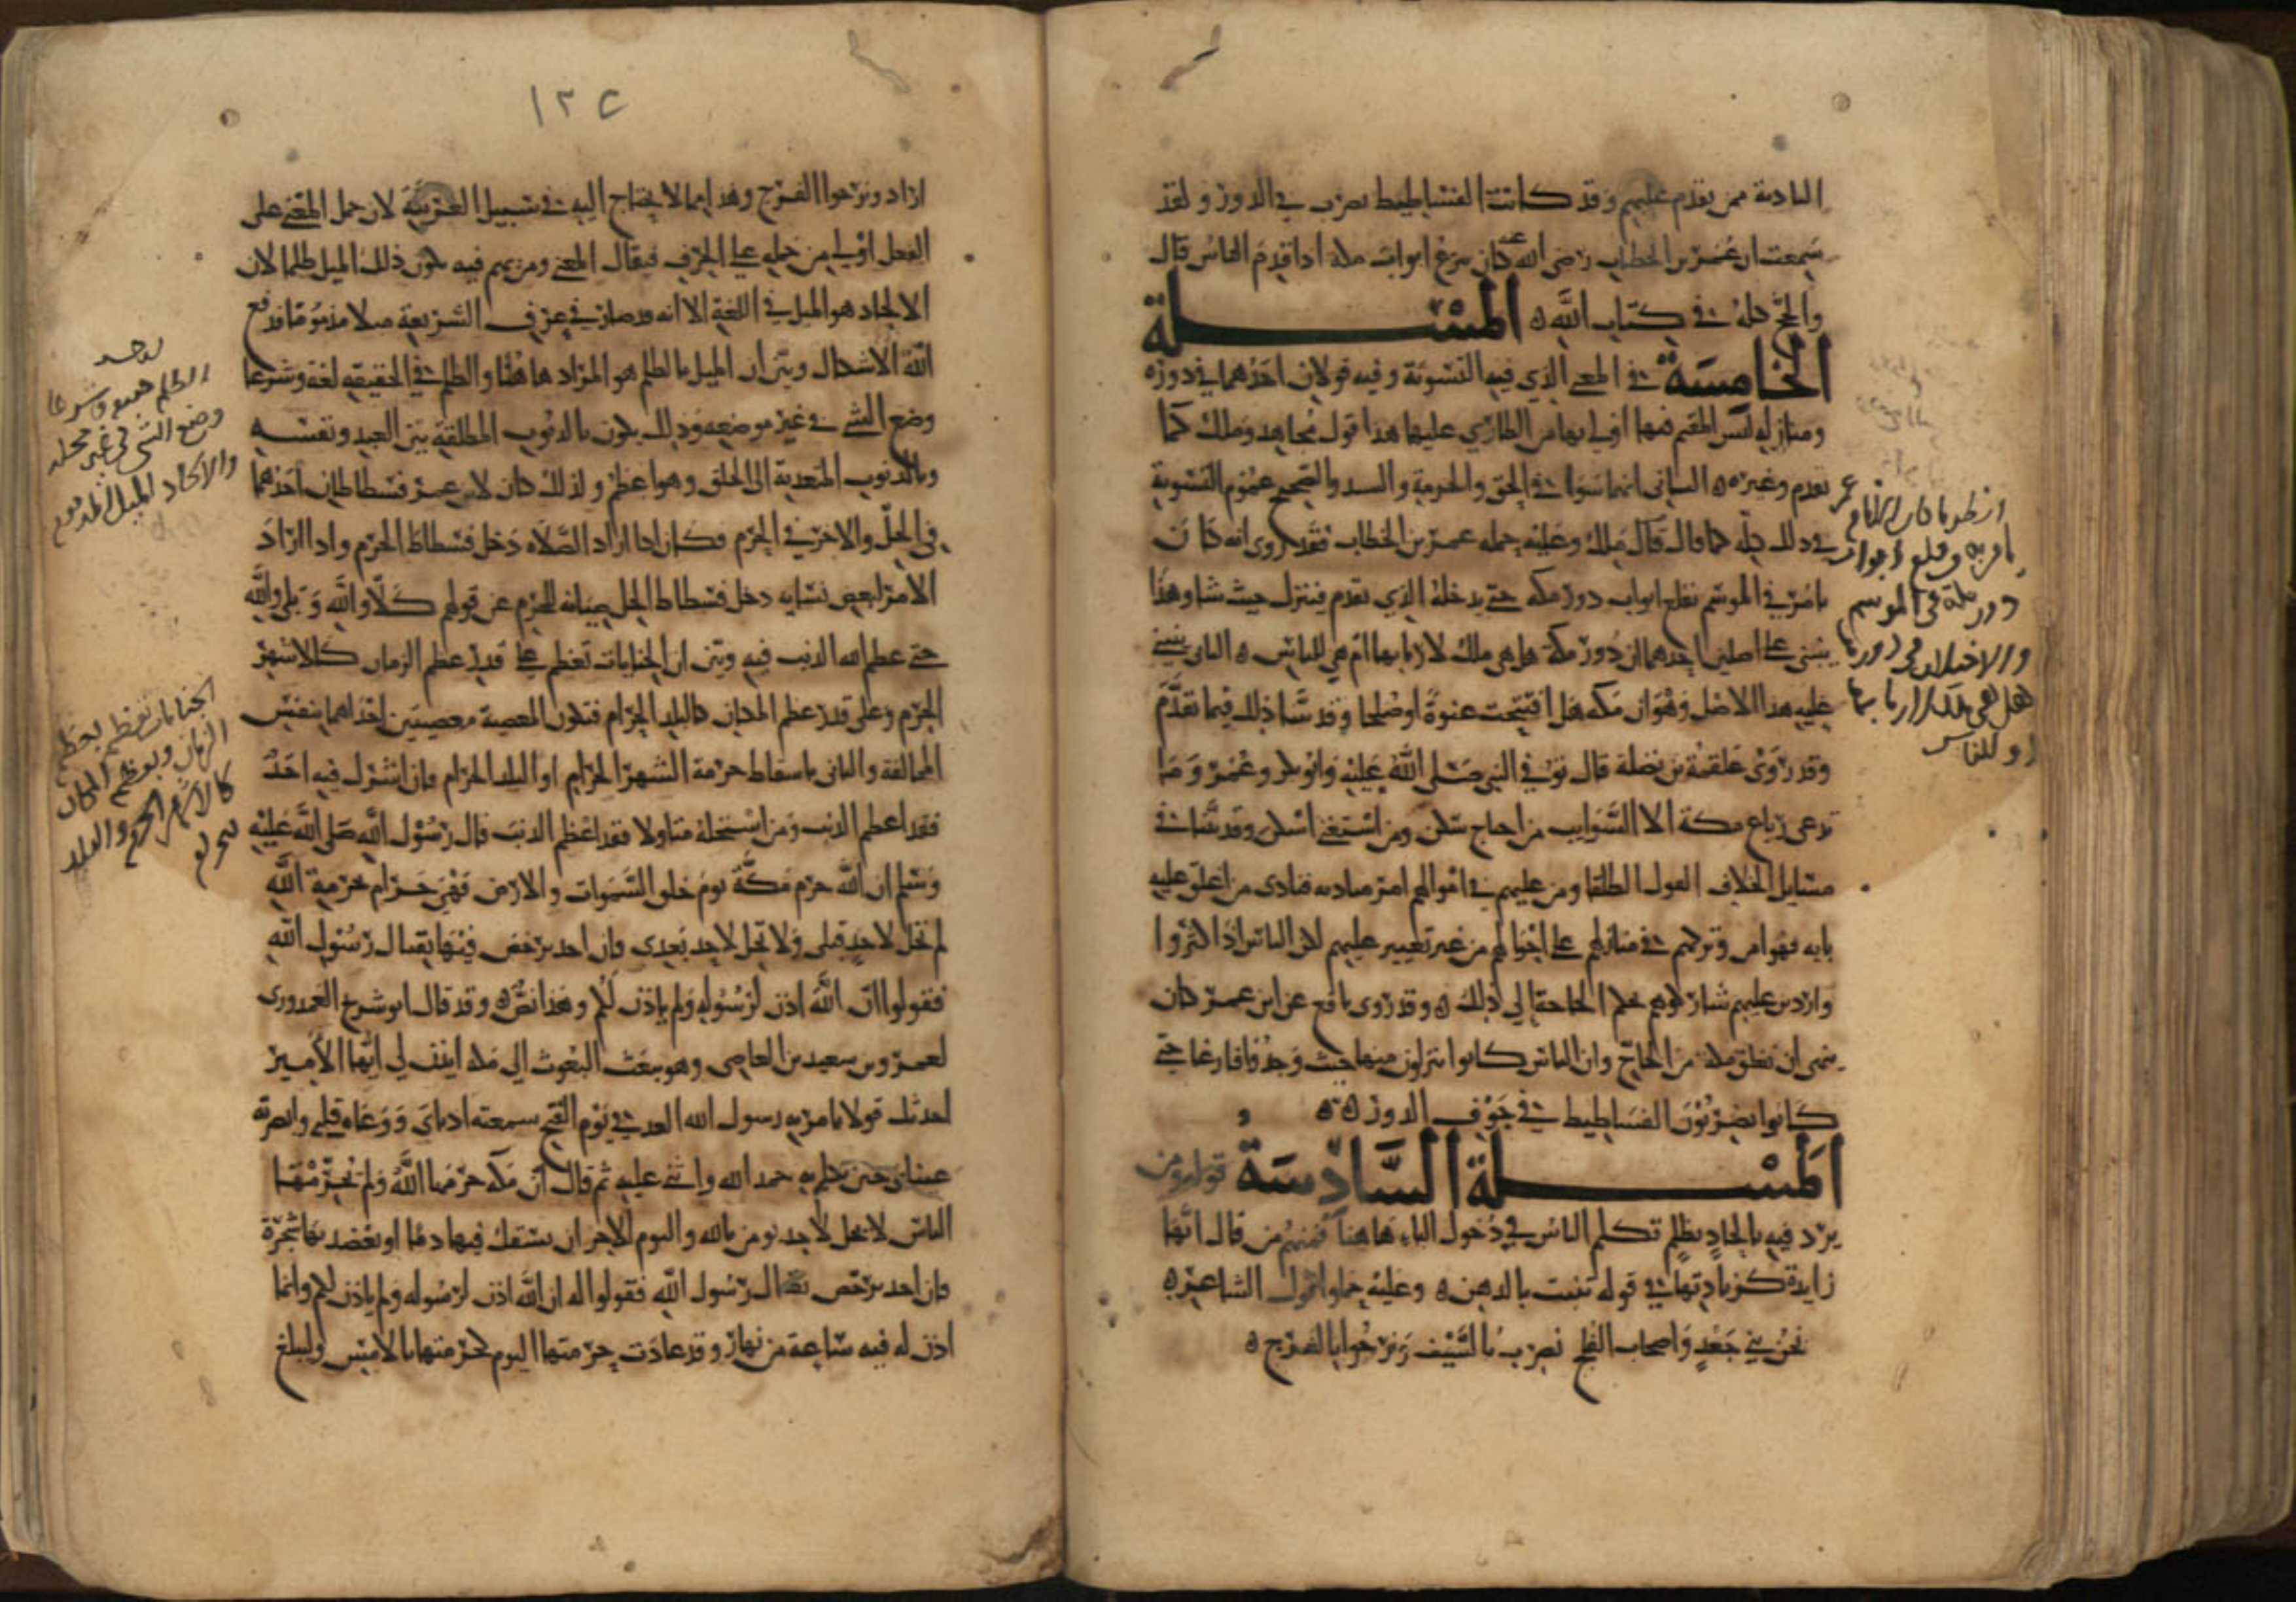 البادية ممن يقدم عليهم وقد كانت الفساطيط تضرب في الدور ولقد
سمعت ان عمر بن الخطاب رضي الله عنه كان ينزع ابواب مكة اذا قدم الناس قال
والحج كله في كتاب الله ه المسلة
الخامسة في المعنى الذي فيه التسوية وفيه قولان احدهما في دوره
ومنازله ليس المقيم فيها اولى بها من الطاري عليها هذا قول مجاهد وملك كما
تقدم وغيره ه الثاني انهما سوا في الحق والحرمة والنسك والصحيح عموم التسوية
في ذلك كله كما قال قال ملك وعليه حمله عمر بن الخطاب فقد روى انه كان
يامر في الموسم بقلع ابواب دور مكة حتى يدخلها الذي يقدم فينزل حيث شا وهذا
ينبني على اصلين احدهما ان دور مكة هل هي ملك لاربابها ام هي للناس ه الثاني ينبني
عليه هذا الاصل وهو ان مكة هل افتتحت عنوة او صلحا وقد بينا ذلك فيما تقدم
وقد روى علقمة بن نضلة قال توفي النبي صلى الله عليه وابو بكر وعمر وما
تدعى رباع مكة الا السوايب من احتاج سكن ومن استغنى اسكن وقد بينا في
مسايل الخلاف القول الطلقا ومن عليهم في اموالهم امر مناديه فنادى من اغلق عليه
بابه فهو امن وتركهم في منازلهم على احوالهم من غير تغيير عليهم لكن الناس اذا كثروا
واردين عليهم شاركوهم بحكم الحاجة الى ذلك ه وقد روى نافع عن ابن عمر كان
ينهى ان تغلق مكة من الحاج وان الناس كانوا ينزلون منها حيث وجدوا فارغا حتى
كانوا يضربون الفساطيط في جوف الدور ه ه
المسلة السادسة قوله ومن
يرد فيه بالحاد بظلم تكلم الناس في دخول الباء هاهنا فمنهم من قال انها
زايدة كزيادتها في قوله تنبت بالدهن ه وعليه حملوا قول الشاعر ه
نحن بني جعد واصحاب الفلج نضرب بالسيف ونرجوا بالفرج ه
انظر ما كان الامام عمر
يامر به وقلع ابواب
دور مكة في الموسم
والاختلاف في دورها
هل هي ملك لاربابها
او للناس
١٢٥
اراد ونرجوا الفرج وهذا مما لا يحتاج اليه في سبيل العربية لان حمل المعنى على
الفعل اولى من حمله على الحرف فيقال المعنى ومن يهم فيه يكون ذلك الميل ظلما لان
الالحاد هو الميل في اللغة الا انه قد صار في عرف الشريعة ميلا مذموما فرفع
الله الاشكال وبين ان الميل بالظلم هو المراد هاهنا والظلم في الحقيقة لغة وشرعا
وضع الشي في غير موضعه وذلك يكون بالذنوب المطلقة بين العبد ونفسه
وبالذنوب المتعدية الى الخلق وهو اعظم ولذلك كان لابن عمر فسطاطان احدهما
في الحل والاخر في الحرم فكان اذا اراد الصلاة دخل فسطاط الحرم واذا اراد
الامر لبعض نسايه دخل فسطاط الحل صيانة للحرم عن قولهم كلا والله وبلى والله
حتى عظم الله الذنب فيه وبين ان الجنايات تعظم على قدر عظم الزمان كالاشهر
الحرم وعلى قدر عظم المكان كالبلد الحرام فتكون المعصية معصيتين احداهما بنفس
المخالفة والثاني باسقاط حرمة الشهر الحرام او البلد الحرام فان اشرك فيه احد
فقد اعظم الذنب ومن استحله متاولا فقد اعظم الذنب قال رسول الله صلى الله عليه
وسلم ان الله حرم مكة يوم خلق السموات والارض فهي حرام بحرمة الله
لم تحل لاحد قبلي ولا تحل لاحد بعدي فان احد ترخص فيها بقتال رسول الله
فقولوا ان الله اذن لرسوله ولم ياذن لكم وهذا نص ه وقد قال ابو شريح العدوى
لعمرو بن سعيد بن العاصي وهو يبعث البعوث الى مكة ايذن لي ايها الامير
احدثك قولا قام به رسول الله الغد في يوم الفتح سمعته اذناى ووعاه قلبي وابصرته
عيناى حين تكلم به حمد الله واثنى عليه ثم قال ان مكة حرمها الله ولم يحرمها
الناس لا يحل لاحد يومن بالله واليوم الاخر ان يسفك فيها دما او يعضد بها شجرة
فان احد ترخص بقتال رسول الله فقولوا له ان الله اذن لرسوله ولم ياذن لكم وانما
اذن له فيه ساعة من نهار وقد عادت حرمتها اليوم كحرمتها بالامس وليبلغ
الظلم وشرعا
وضع الشي في غير محله
والالحاد الميل المذموم
الجنايات تعظم بعظم
الزمان وبعظم المكان
كالاشهر الحرم والبلد